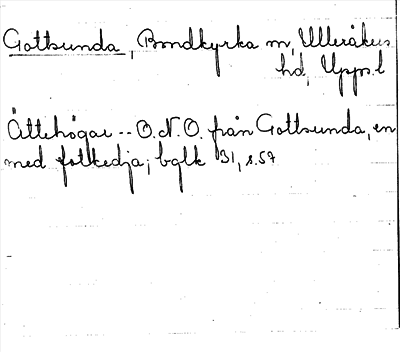 Gottsunda, Bondkyrka sn, Ulleråkers
hd, Upps. l
Ättehögar -- O.N.O. från Gottsunda, en
med fotkedja; bglk 31, s. 57